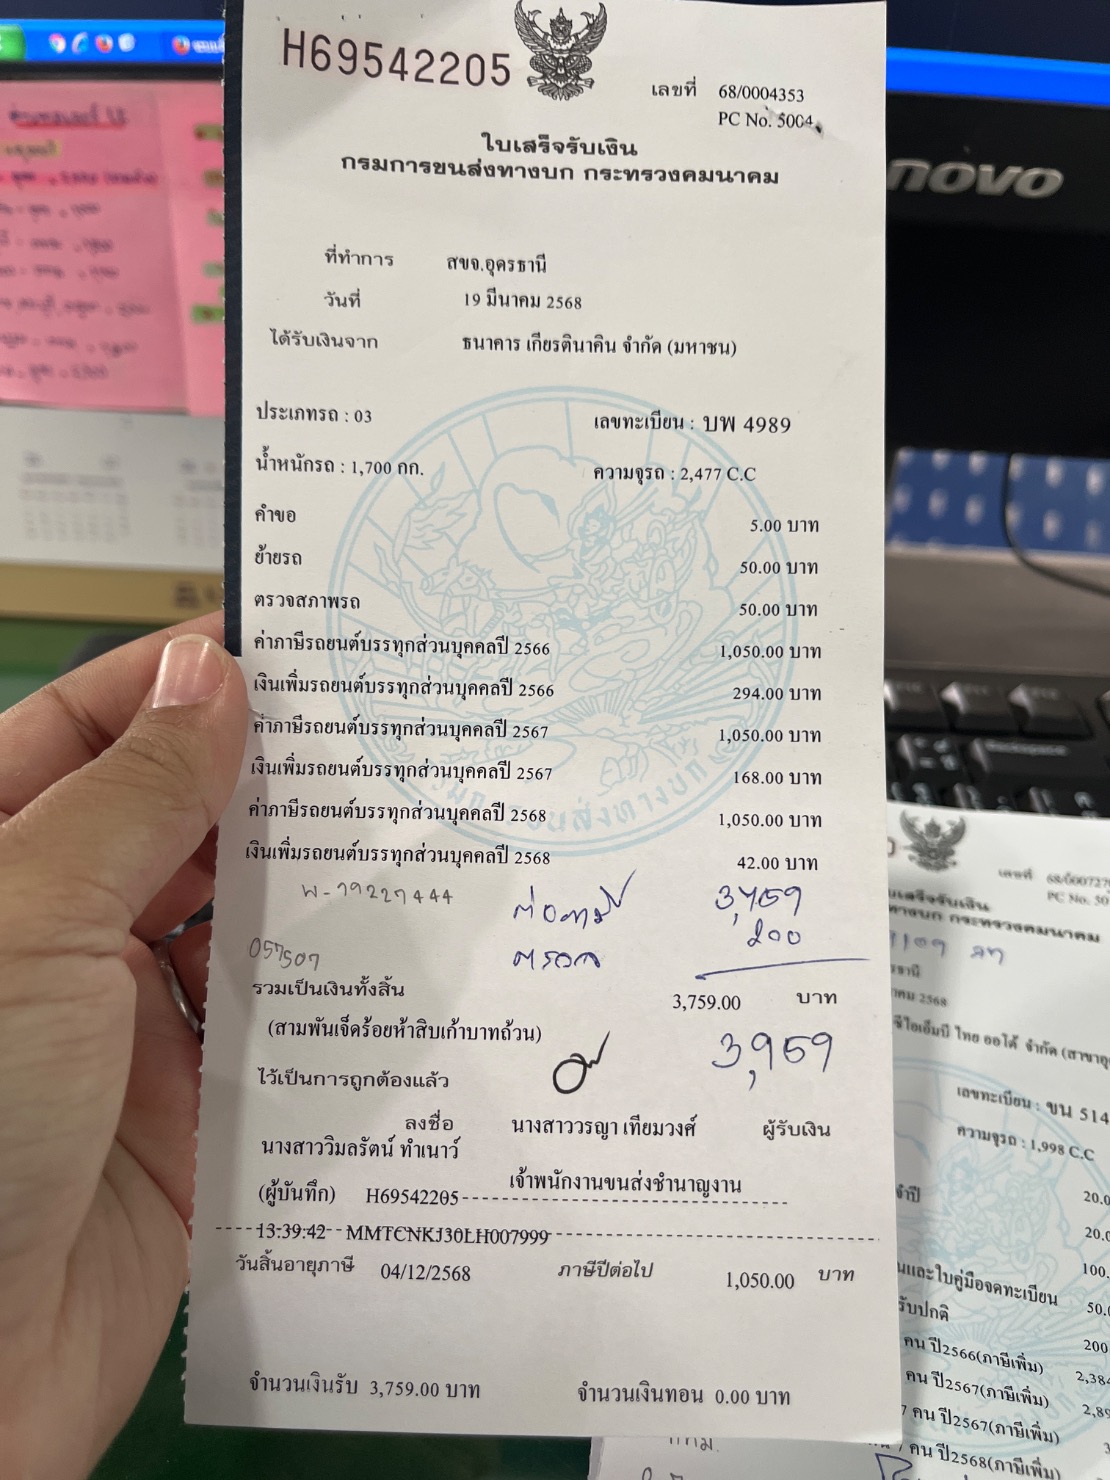 H69542205
เลขที่ 68/0004353
PC No. 5004
ใบเสร็จรับเงิน
กรมการขนส่งทางบก กระทรวงคมนาคม
ที่ทำการ สขจ.อุดรธานี
วันที่ 19 มีนาคม 2568
ได้รับเงินจาก ธนาคาร เกียรตินาคิน จำกัด (มหาชน)
ประเภทรถ : 03 เลขทะเบียน : บพ 4989
น้ำหนักรถ : 1,700 กก. ความจุรถ : 2,477 C.C
คำขอ 5.00 บาท
ย้ายรถ 50.00 บาท
ตรวจสภาพรถ 50.00 บาท
ค่าภาษีรถยนต์บรรทุกส่วนบุคคลปี 2566 1,050.00 บาท
เงินเพิ่มรถยนต์บรรทุกส่วนบุคคลปี 2566 294.00 บาท
ค่าภาษีรถยนต์บรรทุกส่วนบุคคลปี 2567 1,050.00 บาท
เงินเพิ่มรถยนต์บรรทุกส่วนบุคคลปี 2567 168.00 บาท
ค่าภาษีรถยนต์บรรทุกส่วนบุคคลปี 2568 1,050.00 บาท
เงินเพิ่มรถยนต์บรรทุกส่วนบุคคลปี 2568 42.00 บาท
ต่อภาษี 3,759
057507 ตรวจ 200
รวมเป็นเงินทั้งสิ้น 3,759.00 บาท
(สามพันเจ็ดร้อยห้าสิบเก้าบาทถ้วน) 3,959
ไว้เป็นการถูกต้องแล้ว
ลงชื่อ นางสาววรญา เทียมวงศ์ ผู้รับเงิน
นางสาววิมลรัตน์ ทำเนาว์
(ผู้บันทึก) H69542205 เจ้าพนักงานขนส่งชำนาญงาน
13:39:42 MMTCNKJ30LH007999
วันสิ้นอายุภาษี 04/12/2568 ภาษีปีต่อไป 1,050.00 บาท
จำนวนเงินรับ 3,759.00 บาท จำนวนเงินทอน 0.00 บาท
novo
Backspace
เลขที่
ทางบก กระทรวงคมนาคม
เลขทะเบียน : ขน 514
ความจุรถ : 1,998 C.C
20.0
20.0
100.
และใบคู่มือจดทะเบียน 50.0
200
คน ปี2566(ภาษีเพิ่ม) 2,384
คน ปี2567(ภาษีเพิ่ม)
7 คน ปี2567(ภาษีเพิ่ม)
7 คน ปี2568(ภาษีเพิ่ม)